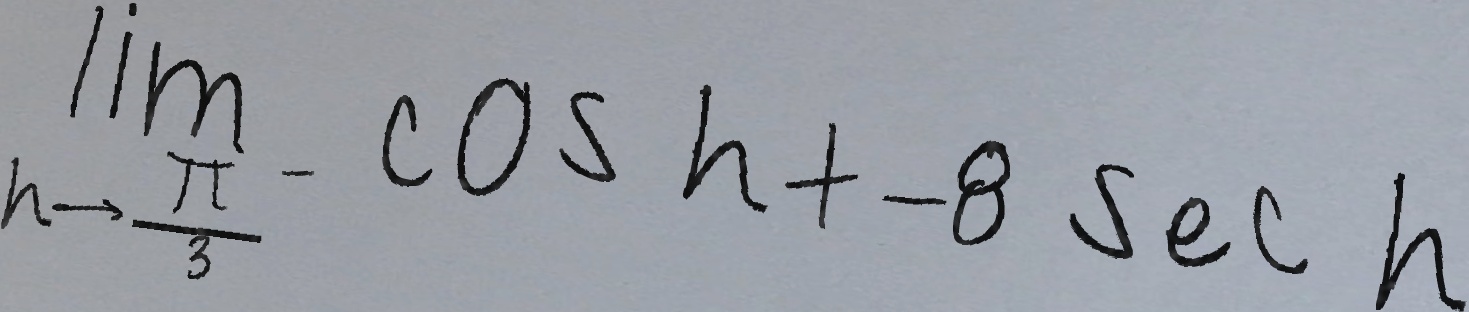 lim h→π/3⁻ cos h + -8 sec h